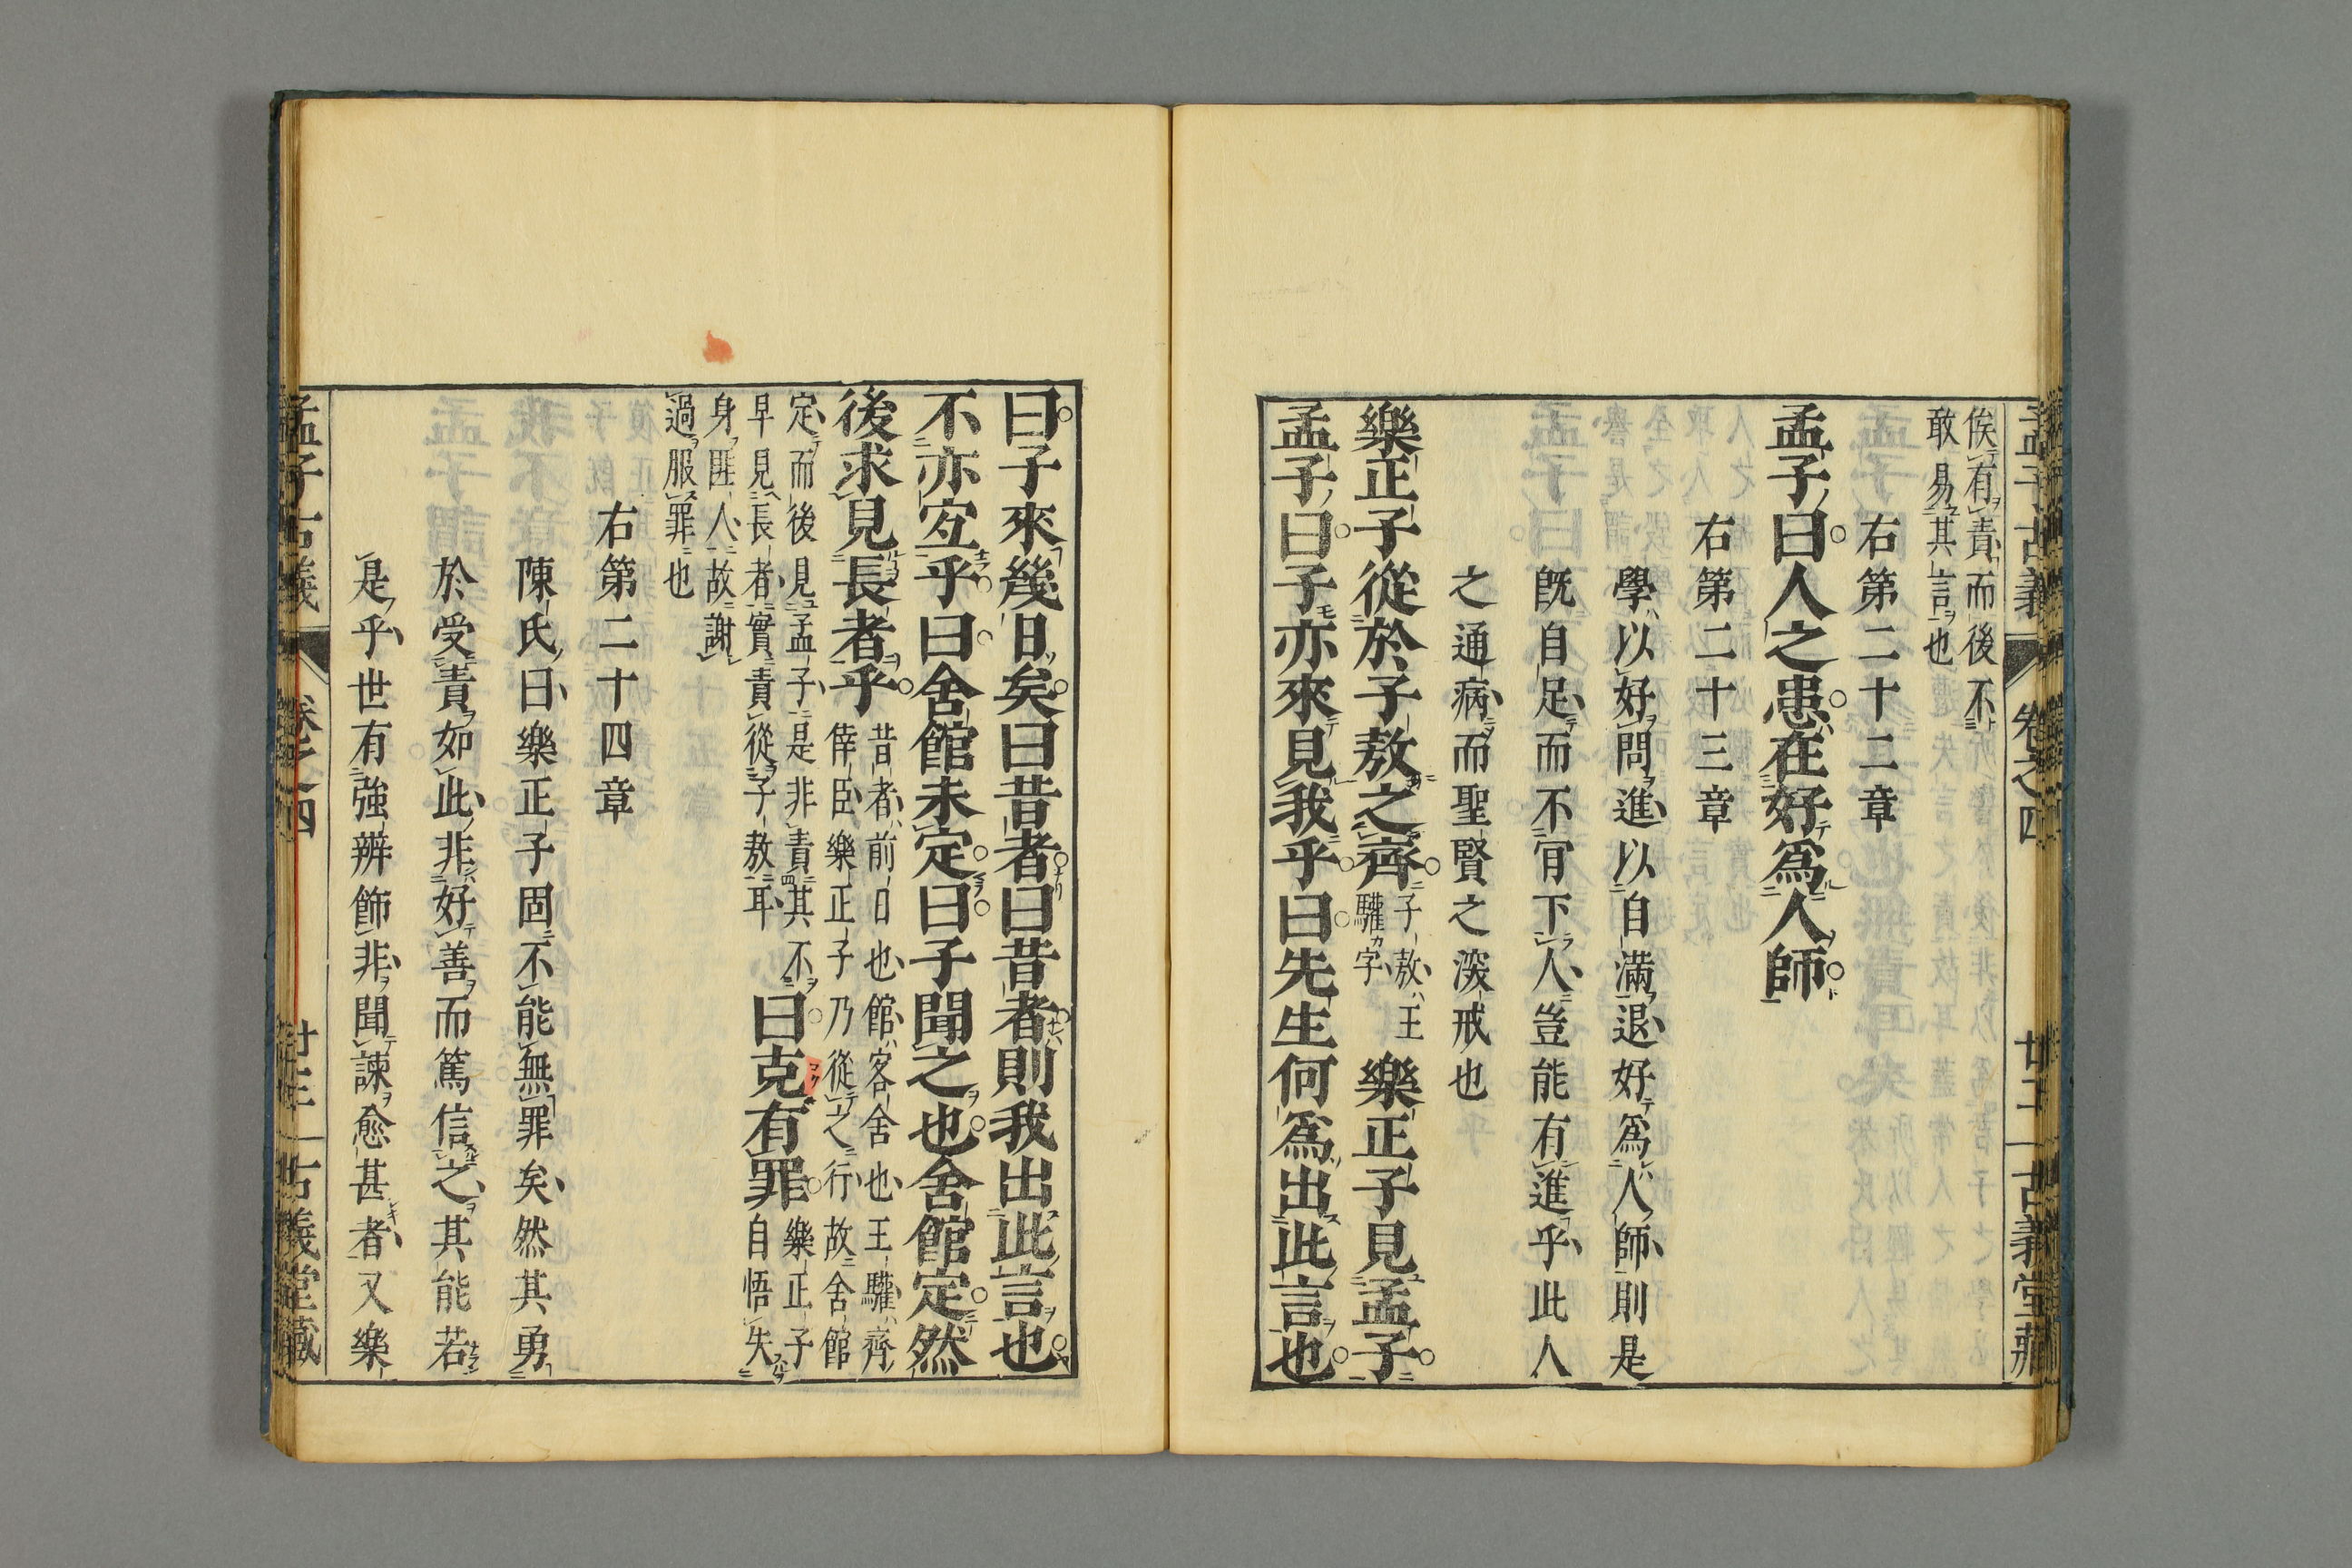 俟有責而後不
敢易其言也
右第二十二章
孟子曰人之患在好爲人師
右第二十三章
學以好問進以自滿退好爲人師則是
既自足而不肎下人豈能有進乎此人
之通病而聖賢之深戒也
樂正子從於子敖之齊
子敖王
驩字
樂正子見孟子
孟子曰子亦來見我乎曰先生何爲出此言也
孟子古義
卷之四
古義堂藏
曰子來幾日矣曰昔者曰昔者則我出此言也
不亦宐乎曰舍館未定曰子聞之也舍館定然
後求見長者乎
昔者前日也館客舍也王驩齊
倖臣樂正子乃從之行故舍館
定而後見孟子是非責其不
早見長者實責從子敖耳
曰克有罪
樂正子
自悟失
身匪人故謝
過服罪也
右第二十四章
陳氏曰樂正子固不能無罪矣然其勇
於受責如此非好善而篤信之其能若
是乎世有強辨飾非聞諫愈甚者又樂
孟子古義
卷之四
古義堂藏